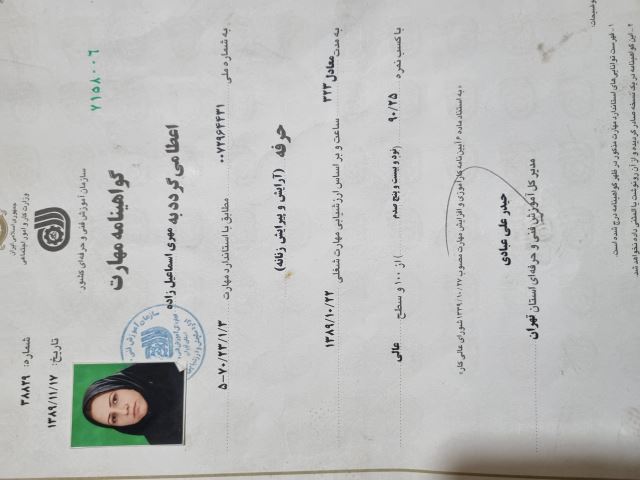 جمهوری اسلامی ایران
وزارت کار و امور اجتماعی
سازمان آموزش فنی و حرفه‌ای کشور
شماره: ۳۸۸۲۹
تاریخ: ۱۳۸۹/۱۱/۱۷
۷۱۵۸۰۰۶
گواهینامه مهارت
اعطا می گردد به مهری اسماعیل زاده
به شماره ملی ۰۰۷۲۹۶۴۴۳۱ مطابق با استاندارد مهارت ۵-۷۰/۲۳/۱/۳
حرفه (آرایش و پیرایش زنانه)
به مدت معادل ۳۲۳ ساعت و بر اساس ارزشیابی مهارت شغلی ۱۳۸۹/۱۰/۲۲
با کسب نمره ۹۰/۲۵ (نود و بیست و پنج صدم) از ۱۰۰ و سطح عالی
« به استناد ماده ۶ آیین نامه کارآموزی و افزایش مهارت مصوب ۱۳۴۹/۱۰/۲۷ شورای عالی کار»
حیدر علی عبادی
مدیر کل آموزش فنی و حرفه‌ای استان تهران
توضیحات:
۱- فهرست توانایی‌های استاندارد مهارت مذکور در ظهر گواهینامه درج شده است.
۲- این گواهینامه در یک نسخه صادر گردیده و از آن رونوشت یا المثنی داده نخواهد شد.